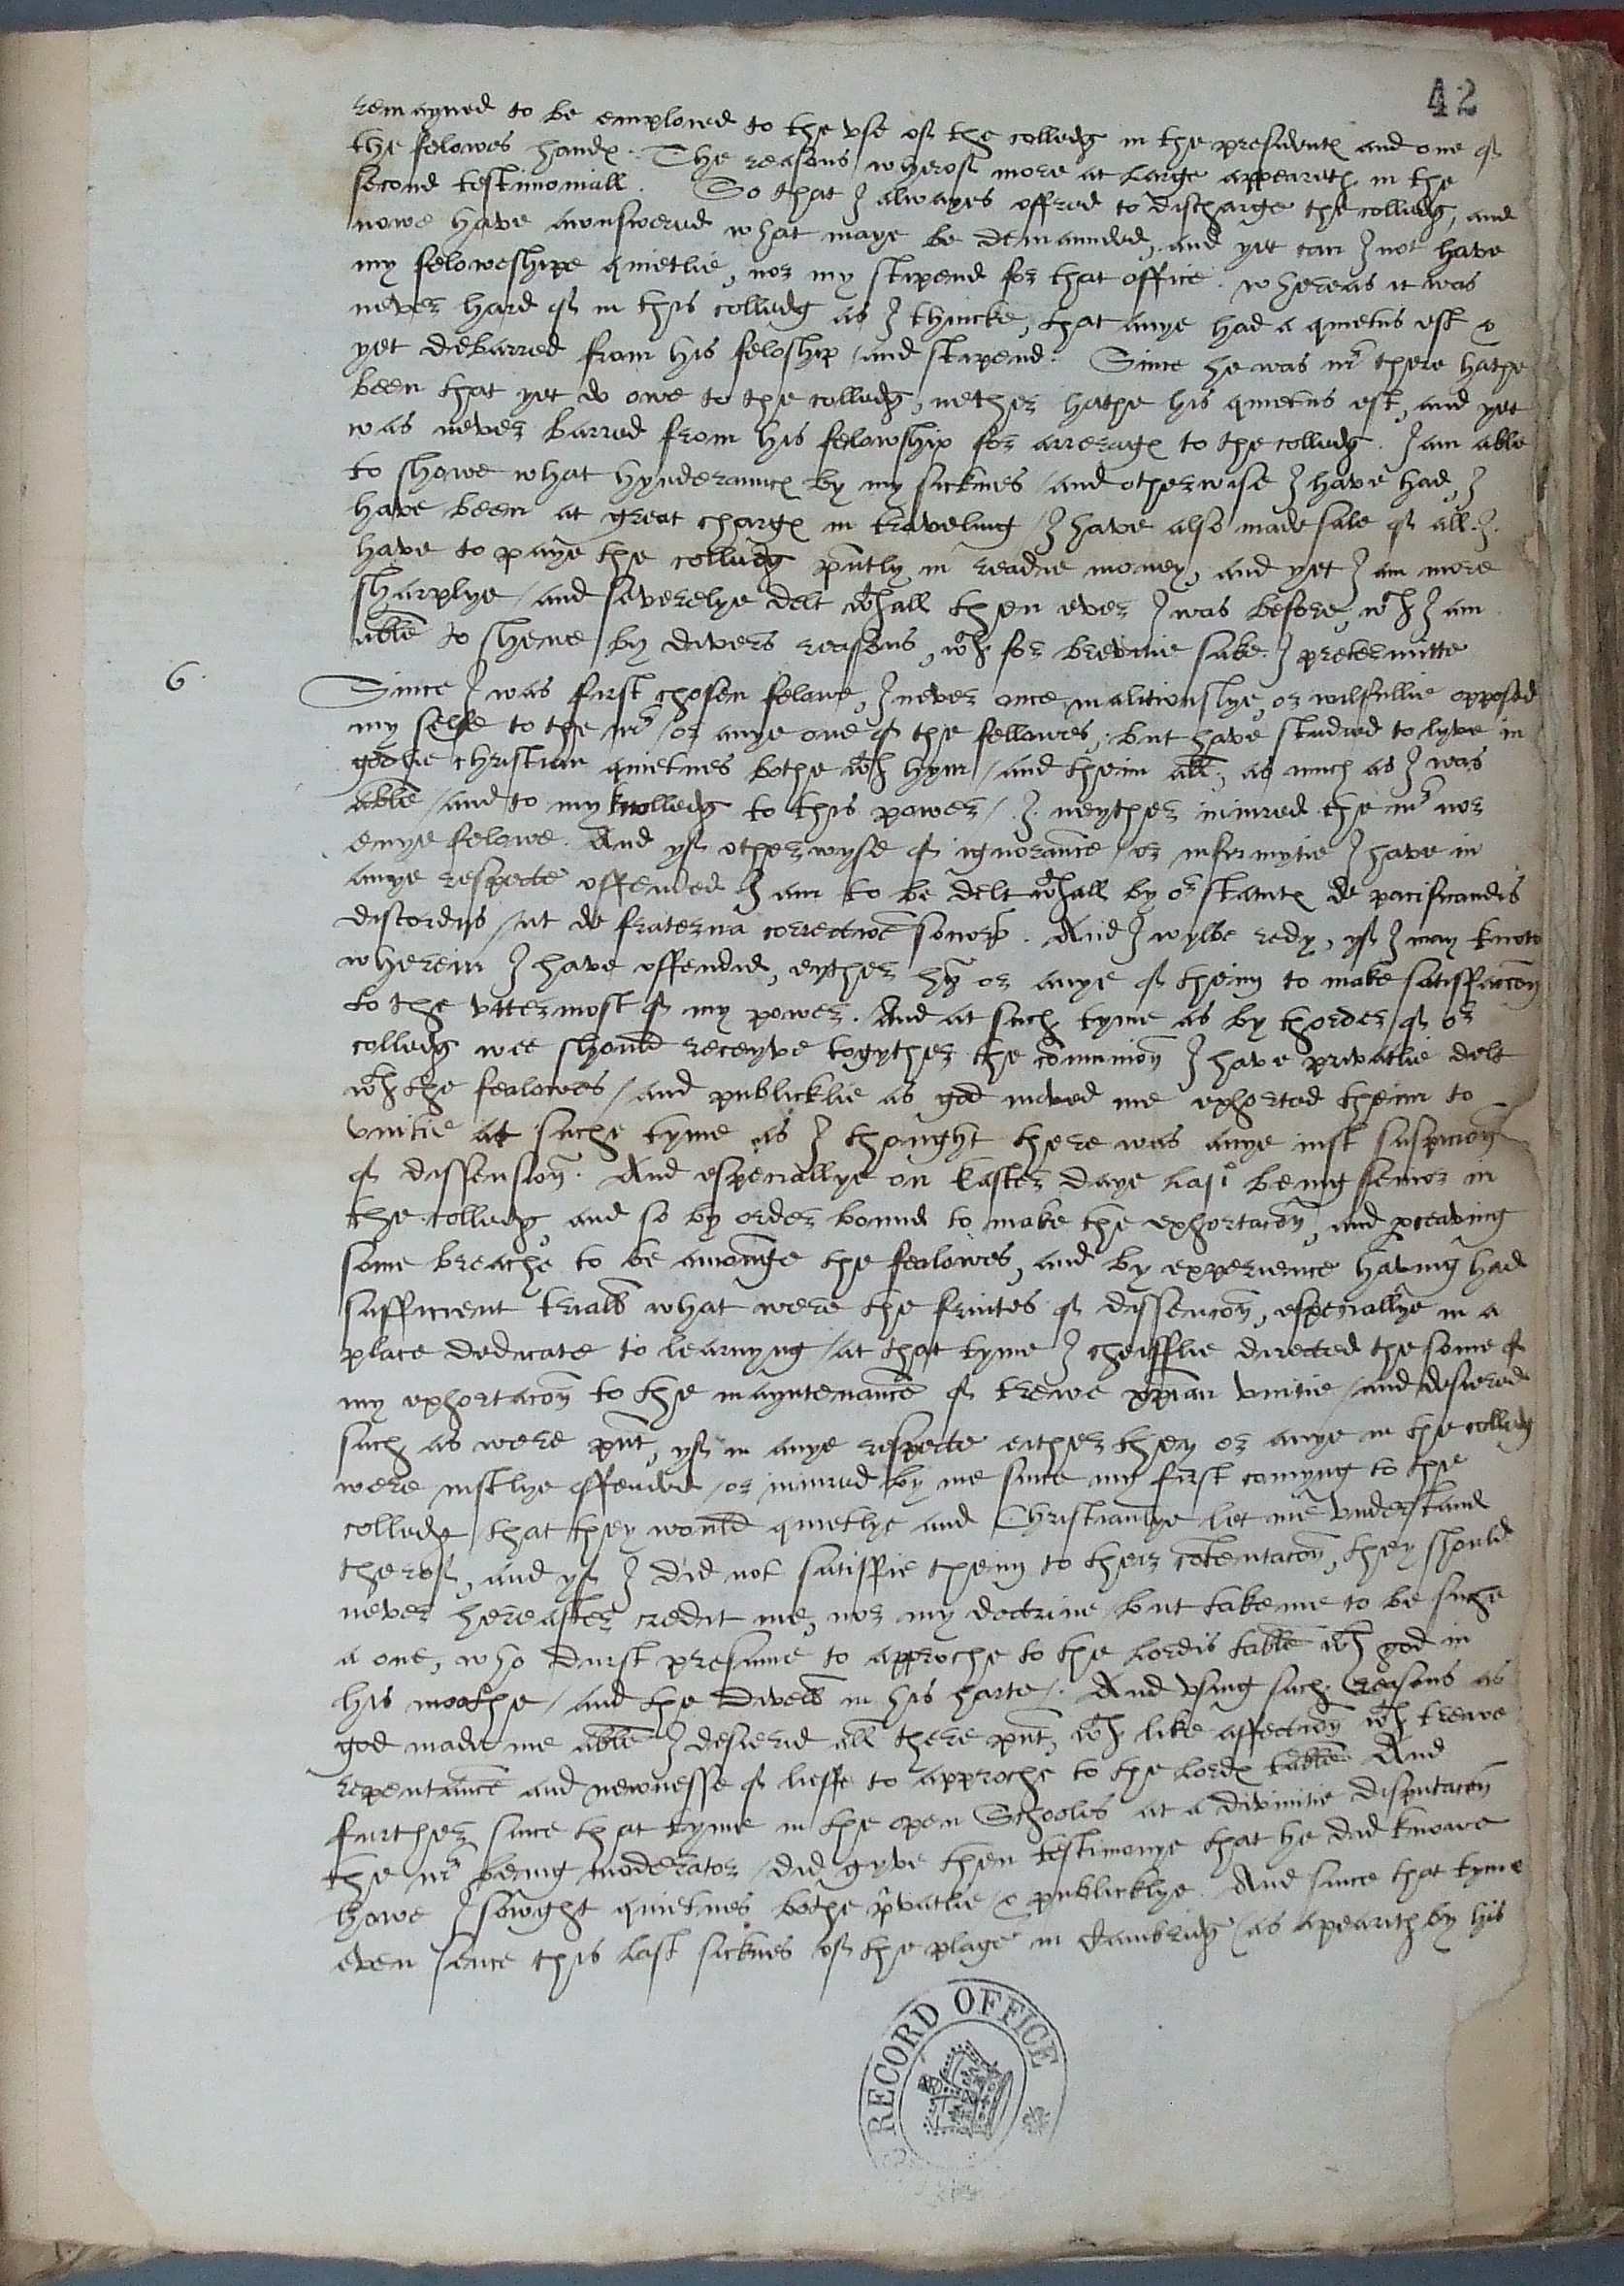 42
remayned to be emploied to the vse of the colledg in the presidentes and one of
the felowes handes. The reasons wherof more at large appearith in the
second testimoniall. So that I alwayes offred to discharge the colledg, and
nowe have aunswered what maye be demaunded, and yet can I not have
my feloweshipe quietlie, nor my stipend for that office. whereas it was
never hard of in this colledg as I thincke, that anye had a quietus est &
yet debarred from his feloship / and stipend. Since he was mr there hathe
been that yet do owe to the colledg, nether hathe his quietus est, and yet
was never barred from his felowship for arrerages to the colledg. I am able
to showe what hynderaunces by my sicknes / and otherwise I have had, I
have been at great charges in traveling / I have also made sale of all I
have to paye the colledg pntly in readie money, and yet I am more
sharplye / and severelye delt wthall then ever I was before, wch I am
able to shewe by divers reasons, wch for brevitie sake I pretermitte
6.
Since I was first chosen felowe, I never once malitiouslye, or wilfullie opposed
my selfe to the mr / or anye one of the fellowes, but have studied to lyve in
godlie christian quietnes bothe wth hym / and theim all, as much as I was
able / and to my knolledg to this power / I neyther iniured the mr nor
enye felowe. And yf otherwyse of ignorance / or infirmytie I have in
anye respecte offended I am to be delt wthall by or statutes de pacificandis
discordijs / ut de fraterna correctione seniorum. And I wylbe redy, yf I may knowe
wherein I have offendid, eyther hym or anye of theim to make satisffaccion
to the vttermost of my power. And at such tyme as by thorder of or
colledg wee should receyve togyther the comunion I have privatlie delt
wth the fealowes / and publicklie as god moved me exhorted theim to
vnitie at suche tyme as I thought there was anye iust suspicion
of dissension. And especiallye on Easter daye last being senior in
the colledg and so by order bound to make the exhortacon, and pceaving
some breache to be amonge the fealowes, and by experience having had
sufficient triall what were the fruites of dissencon, especiallye in a
place dedicate to learnyng / at that tyme I cheifflie directed the some of
my exhortacon to the mayntenance of trewe xpian vnitie / and desiered
such as were pnt, yf in anye respecte either they or anye in the colledg
were iustlye offended / or iniured by me since my first comyng to the
colledg that they would quietlye and Christianlye let me vnderstand
therof, and yf I did not satisfie theim to their cotentacon, they should
never hereafter credit me, nor my doctrine but take me to be suche
a one, who durst presume to approche to the lordis table wth god in
his mouthe / and the Divell in his harte /. And vsing such reasons as
god made me able I desierid all there pnt, wth like affection wth trewe
repentance and newnesse of lieffe to approche to the lordes table. And
further since that tyme in the open Schooles at a divinitie disputacon
the mr being moderator / did gyve then testimonye that he did knowe
howe I sowght quietnes bothe privatlie & publicklye. And since that tyme
even since this last sicknes of the plage in Cambridg (as apearith by his
RECORD OFFICE